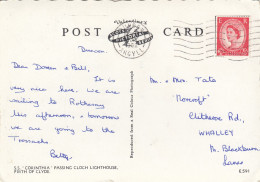 POST CARD
Valentine's
ARGYLL
Dunoon.
Dear Doreen & Bill,
It is
very nice here. We are
waiting to Rothesay
this afternoon, & tomorrow
we are going to the
Trossachs
Betty.
Mr & Mrs. Tate
"Roncroft"
Clitheroe Rd.,
WHALLEY
Nr. Blackburn
Lancs
S.S. "CORINTHIA" PASSING CLOCH LIGHTHOUSE,
FIRTH OF CLYDE